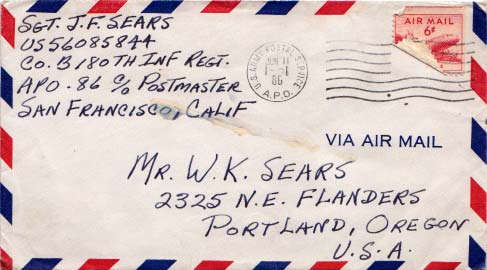 SGT. J.F. SEARS
US56085844
CO. B 180TH INF REGT.
APO. 86 C/O POSTMASTER
SAN FRANCISCO, CALIF
U.S. ARMY POSTAL SERVICE
JUN 11
86
A.P.O.
AIR MAIL
6¢
VIA AIR MAIL
MR. W.K. SEARS
2325 N.E. FLANDERS
PORTLAND, OREGON
U.S.A.